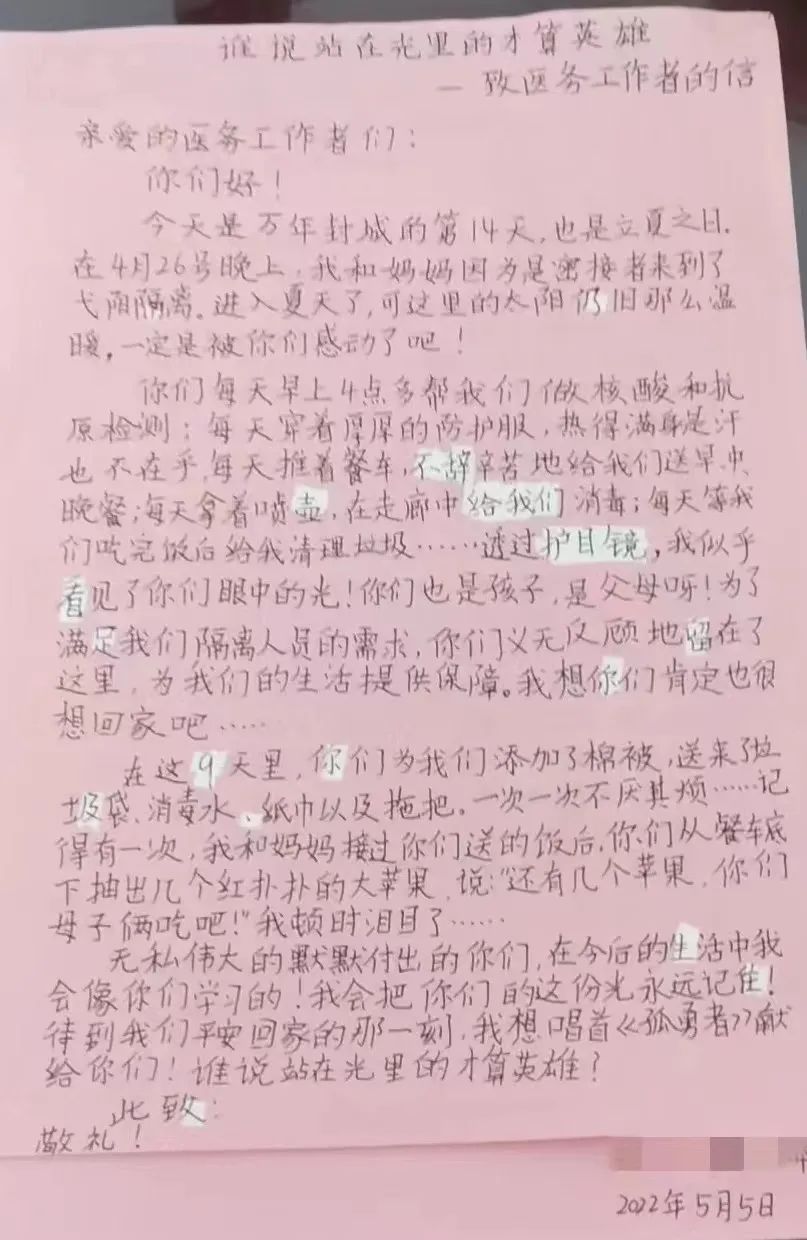 谁说站在光里的才算英雄
—致医务工作者的信
亲爱的医务工作者们：
你们好！
今天是万年封城的第14天，也是立夏之日.
在4月26号晚上，我和妈妈因为是密接者来到了
弋阳隔离。进入夏天了,可这里的太阳仍旧那么温
暖，一定是被你们感动了吧！
你们每天早上4点多帮我们做核酸和抗
原检测；每天穿着厚厚的防护服，热得满身是汗
也不在乎,每天推着餐车,不辞辛苦地给我们送早中
晚餐;每天拿着喷壶，在走廊中给我们消毒；每天等我
们吃完饭后给我清理垃圾……透过护目镜，我似乎
看见了你们眼中的光！你们也是孩子，是父母呀！为了
满足我们隔离人员的需求，你们义无反顾地留在了
这里，为我们的生活提供保障。我想你们肯定也很
想回家吧……
在这9天里，你们为我们添加了棉被，送来了垃
圾袋、消毒水、纸巾以及拖把。一次一次不厌其烦……记
得有一次，我和妈妈接过你们送的饭后，你们从餐车底
下抽出几个红扑扑的大苹果，说："还有几个苹果，你们
母子俩吃吧！"我顿时泪目了……
无私伟大的默默付出的你们，在今后的生活中我
会像你们学习的！我会把你们的这份光永远记住！
待到我们平安回家的那一刻，我想唱首《孤勇者》献
给你们！谁说站在光里的才算英雄？
此致：
敬礼！
2022年5月5日